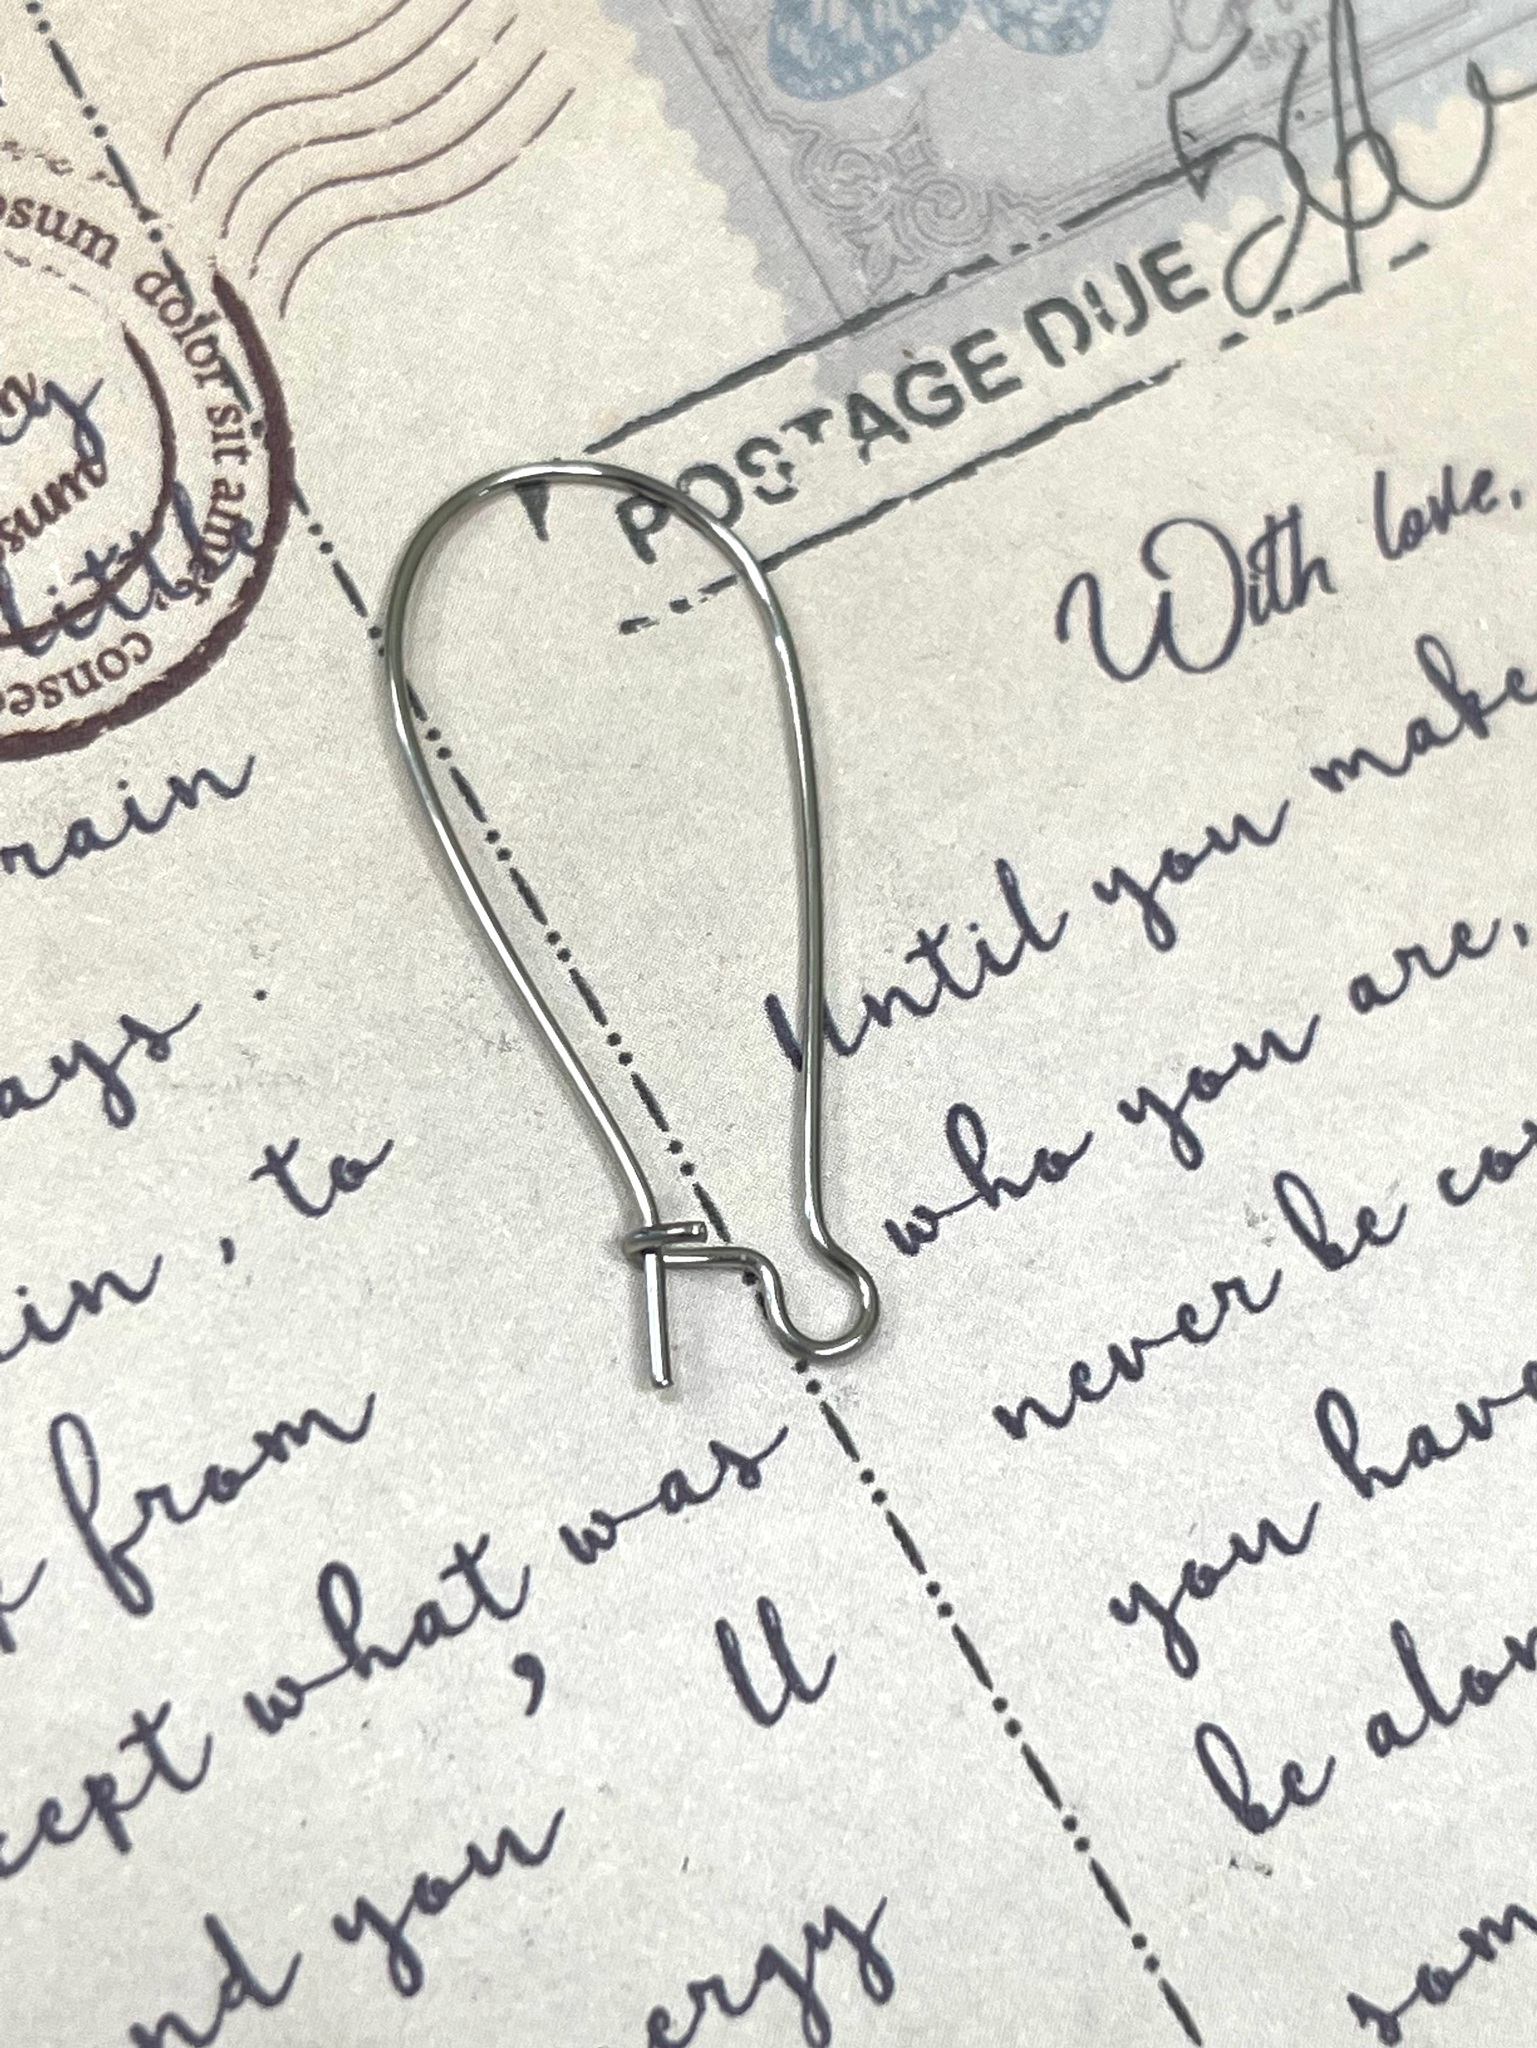 POSTAGE DUE
dolor sit amet,
little
With love,
Until you make
who you are,
never be
you have
be
rain
ays .
in , to
from
cept what was
, ll
nd you
ergy